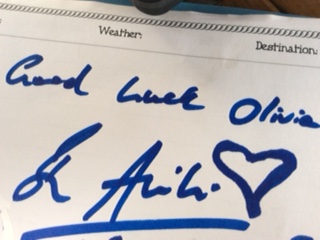 Weather: Destination:
Good Luck Olivia